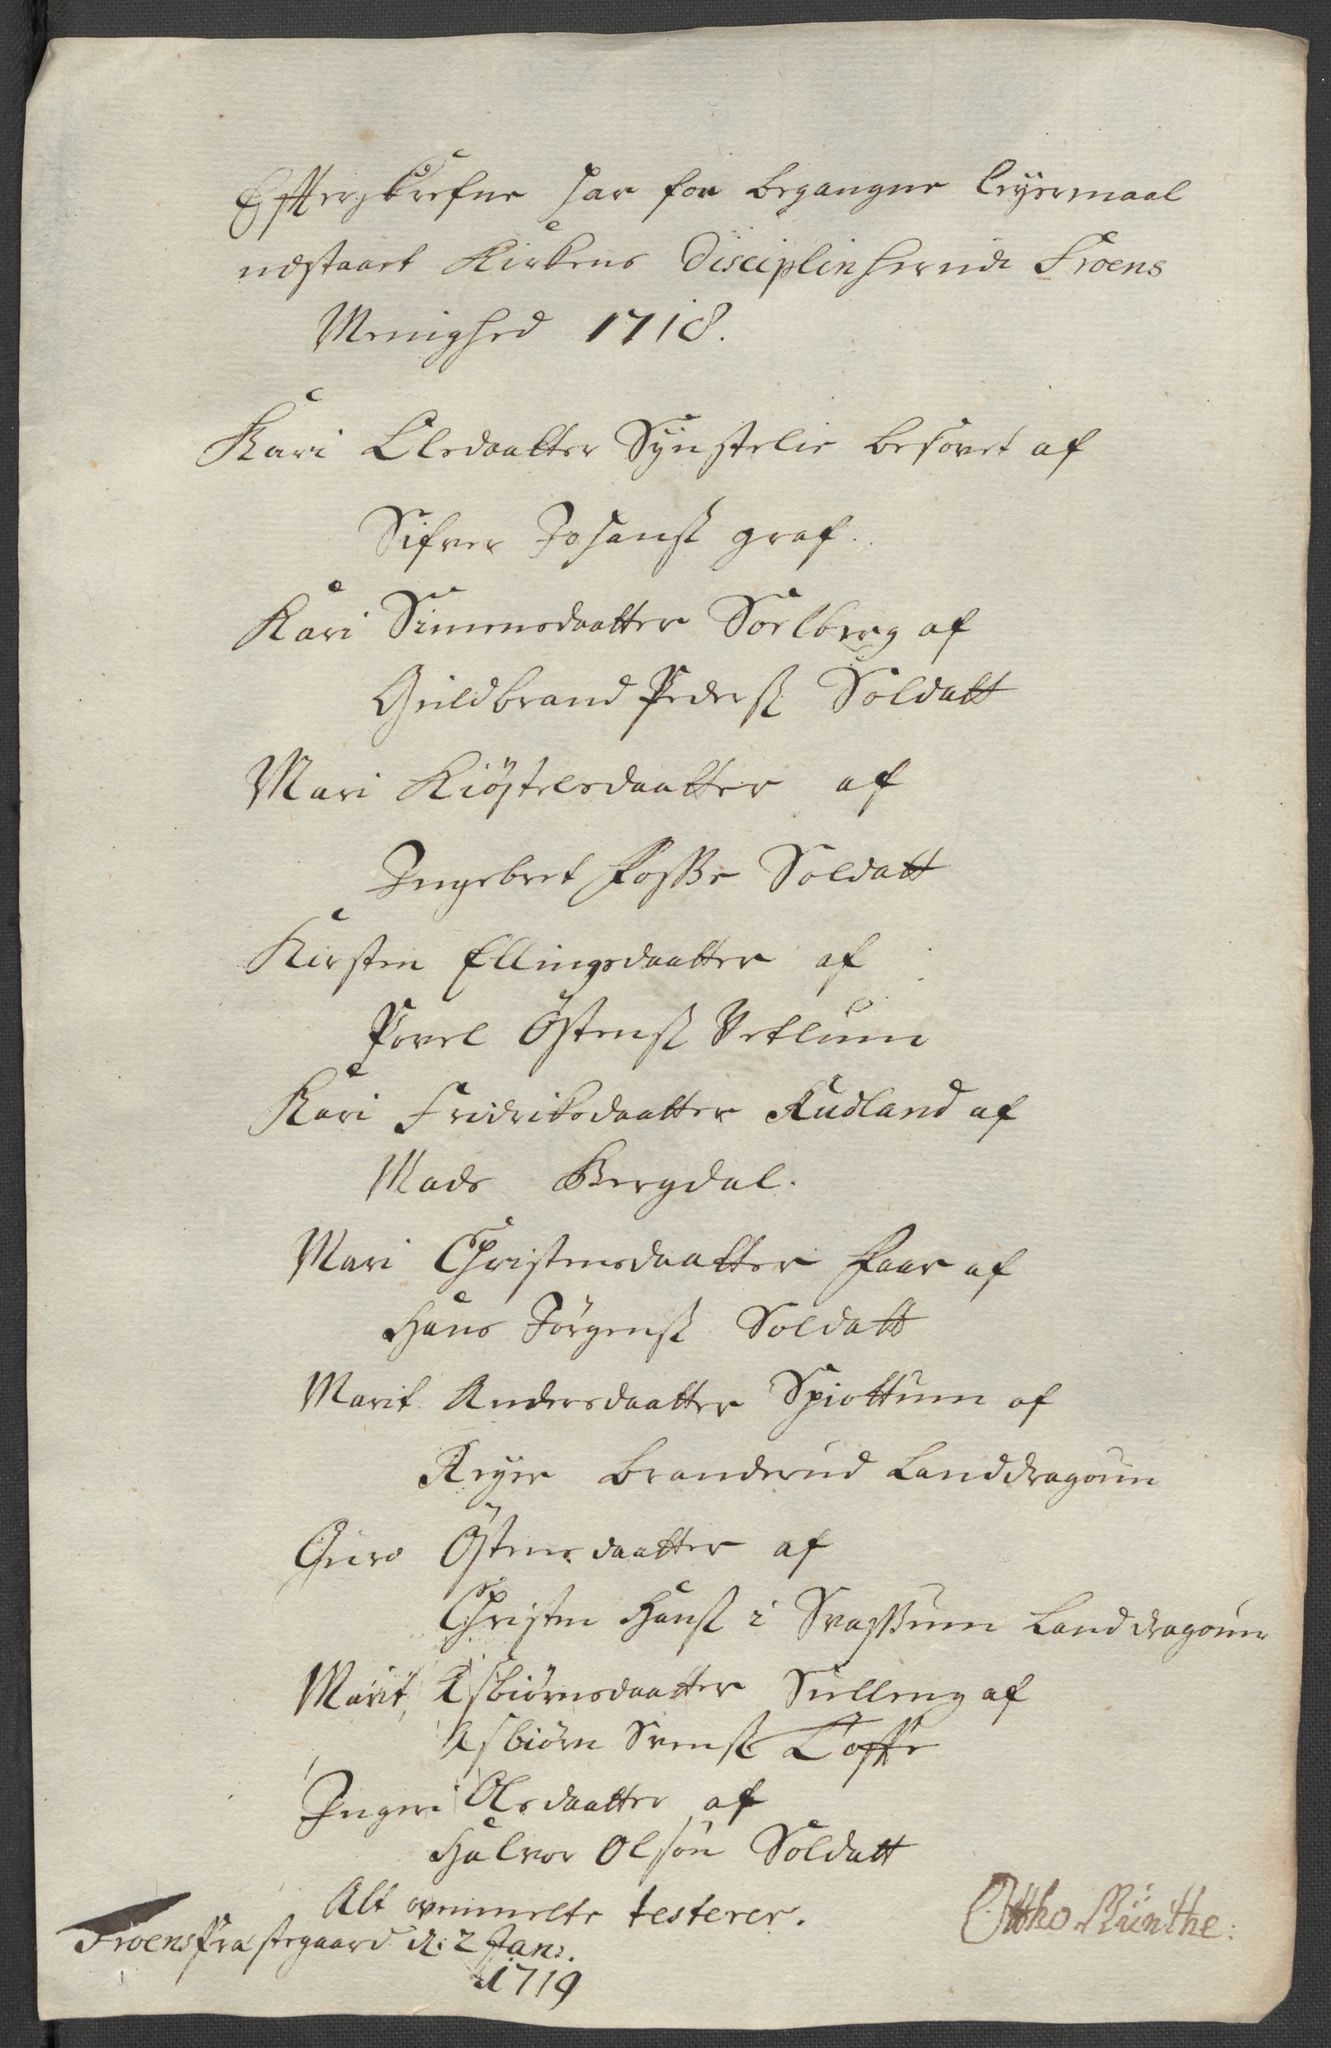 Effterskrefne har for begangne leyermaal
udstaaet Kirkens Disciplin herudi Froens
Menighed 1718.
Kari Olsdaatter Synstelie besovet af
Sifver Johansß graf.
Kari Simensdaatter Soelberg af
Guldbrand Pedersß Soldatt
Mari Kiøstelsdaatter af
Ingebret Foßße Soldatt
Kirsten Ellingsdaatter af
Povel Østensß Vetlum
Kari Fridriksdaatter Rudland af
Mads Bergdal.
Mari Christensdaatter Faar af
Hans Jørgensß Soldatt
Marit Andersdaatter Spiottum af
Reyer Branderud Landdragoun
Guro Østensdaatter af
Christen Hansß i Svaßßum Landdragoun
Marit Asbiørnsdaatter Sulleng af
Asbiørn Svensß Toffte
Ingeri Olsdaatter af
Halvor Olsøn Soldatt
Alt ovenmelte testerer.
Froens Præstegaard d: 2 Jan:
1719
Ottho Munthe: